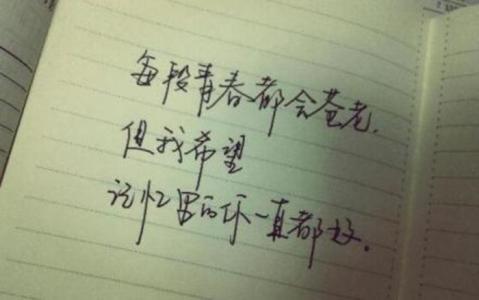 每段青春都会苍老,
但我希望
记忆里的你一直都好.